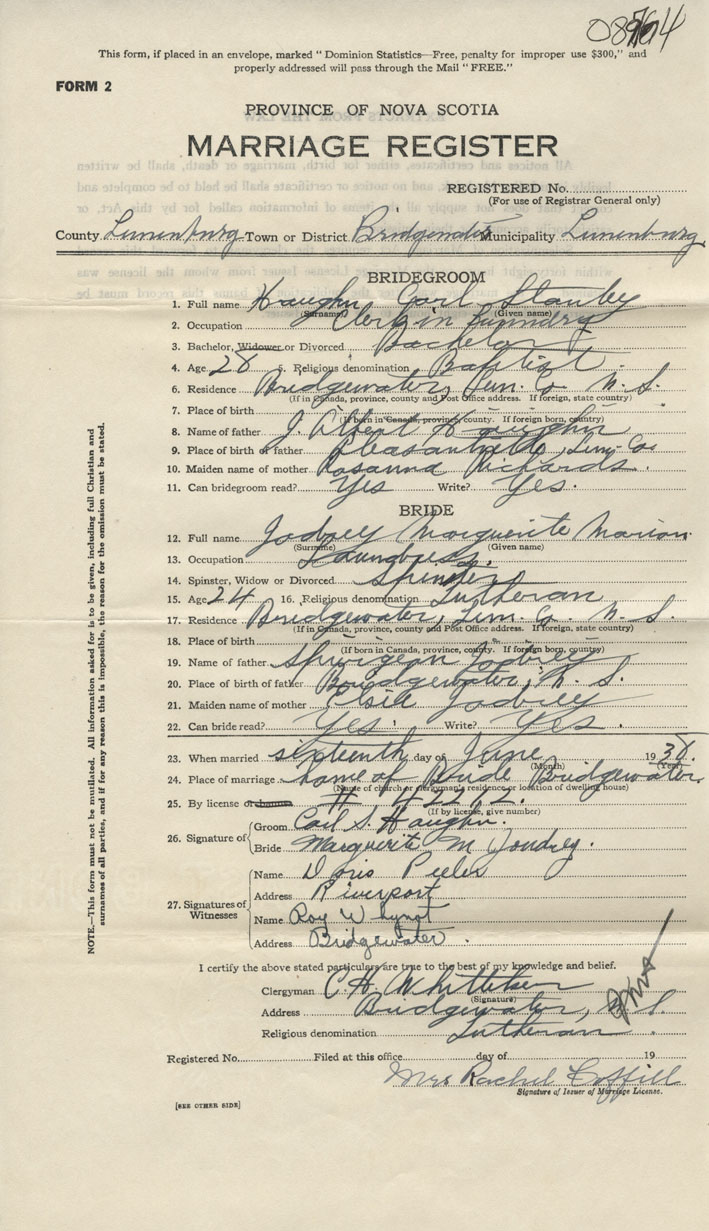 This form, if placed in an envelope, marked "Dominion Statistics—Free, penalty for improper use $300," and
properly addressed will pass through the Mail "FREE."
FORM 2
PROVINCE OF NOVA SCOTIA
MARRIAGE REGISTER
REGISTERED No.
(For use of Registrar General only)
County Lunenburg Town or District Bridgewater Municipality Lunenburg
BRIDEGROOM
1. Full name Haughn Carl Stanley
(Surname) (Given name)
2. Occupation Clerk in foundry
3. Bachelor, Widower or Divorced Bachelor
4. Age 28 5. Religious denomination Baptist
6. Residence Bridgewater, Lun. Co. N.S.
(If in Canada, province, county and Post Office address. If foreign, state country)
7. Place of birth
(If born in Canada, province, county. If foreign born, country)
8. Name of father J. Albert Haughn
9. Place of birth of father Pleasantville, Lun. Co.
10. Maiden name of mother Rosanna Richards
11. Can bridegroom read? Yes Write? Yes.
BRIDE
12. Full name Joudrey Marguerite Marion
(Surname) (Given name)
13. Occupation
14. Spinster, Widow or Divorced Spinster
15. Age 24 16. Religious denomination Lutheran
17. Residence Bridgewater, Lun. Co. N.S.
(If in Canada, province, county and Post Office address. If foreign, state country)
18. Place of birth
(If born in Canada, province, county. If foreign born, country)
19. Name of father Spurgeon Joudrey
20. Place of birth of father Bridgewater, N.S.
21. Maiden name of mother Elsie Joudrey
22. Can bride read? Yes Write? Yes.
23. When married sixteenth day of June 1938.
(Month) (Year)
24. Place of marriage home of Bride Bridgewater
(Name of church or clergyman's residence or location of dwelling house)
25. By license or banns #
(If by license, give number)
26. Signature of Groom Carl S. Haughn.
Bride Marguerite M Joudrey.
27. Signatures of Witnesses
Name Doris Peeler
Address Riverport
Name Roy Whynot
Address Bridgewater.
I certify the above stated particulars are true to the best of my knowledge and belief.
Clergyman C H Whitteker
(Signature)
Address Bridgewater, N.S.
Religious denomination Lutheran.
Registered No. Filed at this office day of 19
Mrs Rachel Coffill
Signature of Issuer of Marriage License.
[SEE OTHER SIDE]
NOTE.—This form must not be mutilated. All information asked for is to be given, including full Christian and
surnames of all parties, and if for any reason this is impossible, the reason for the emission must be stated.